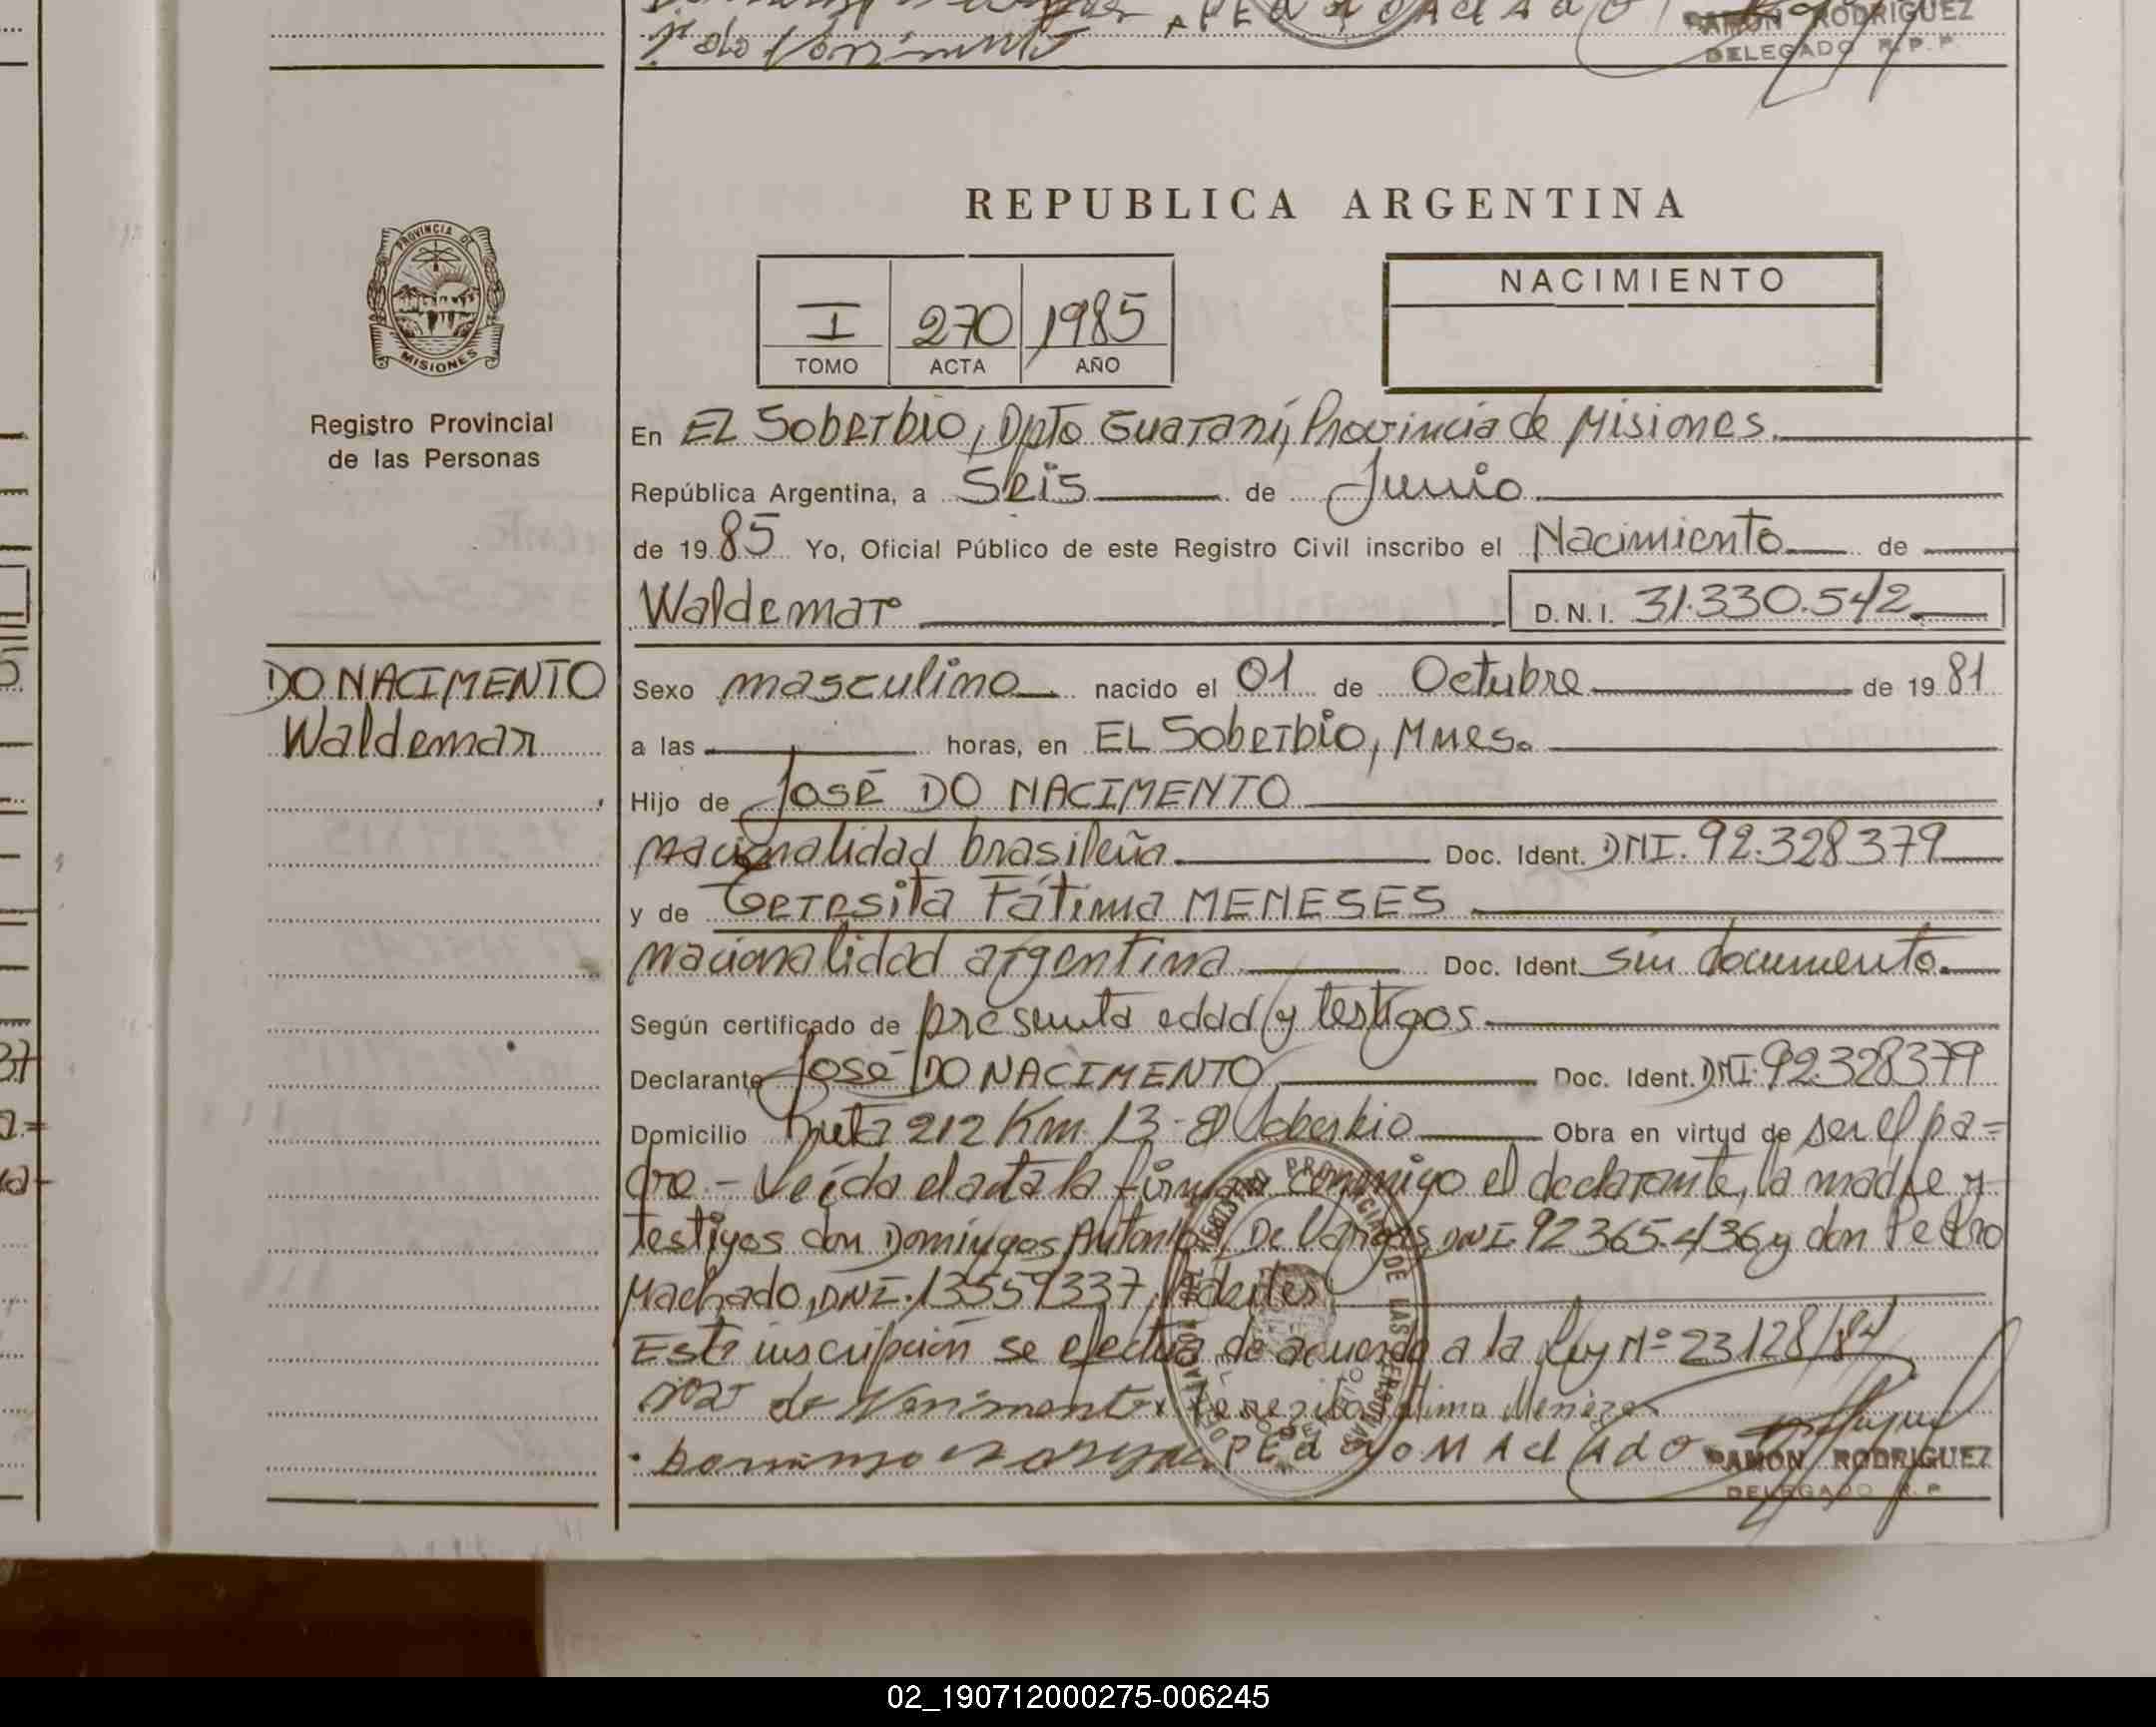 1º do Nassimento
PEdROMACdAdO
RAMON RODRIGUEZ
DELEGADO R. P. P.
PROVINCIA DE
MISIONES
Registro Provincial
de las Personas
DO NACIMENTO
Waldemar
REPUBLICA ARGENTINA
I 270 1985
TOMO ACTA AÑO
NACIMIENTO
En EL Soberbio, Dpto Guaraní, Provincia de Misiones.
República Argentina, a Seis de Junio
de 19 85 Yo, Oficial Público de este Registro Civil inscribo el Nacimiento de
Waldemar D.N.I. 31.330.542
Sexo masculino nacido el 01 de Octubre de 19 81
a las horas, en EL Soberbio, Mnes.
Hijo de José DO NACIMENTO
nacionalidad brasileña Doc. Ident. DNI. 92.328379
y de Teresita Fátima MENESES
nacionalidad argentina Doc. Ident. sin documento.
Según certificado de presunta edad y testigos
Declarante José DO NACIMENTO, Doc. Ident. DNI. 92.328379
Domicilio Ruta 212 Km 13 - El Soberbio Obra en virtud de ser el pa=
dre. - Leída el acta la firman conmigo el declarante, la madre y
testigos don Domingos Antonio De Vargas, DNI. 92365436 y don Pedro
Machado, DNI. 13559337, hábiles
Esta inscripción se efectúa de acuerdo a la Ley Nº 23128/84
do Terezita Fatima Menezes
PEdROMACdAdO
RAMON RODRIGUEZ
DELEGADO R. P.
REGISTRO PROVINCIAL DE LAS PERSONAS
37
02_190712000275-006245